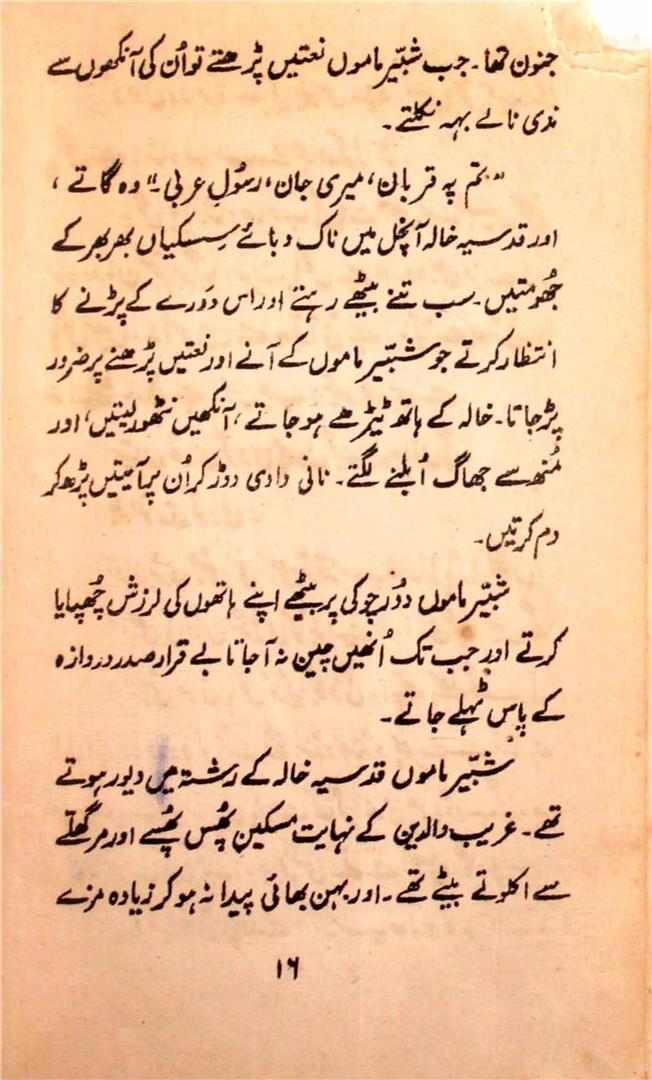 جنون تھا۔ جب شبّیر ماموں نعتیں پڑھتے تو اُن کی آنکھوں سے
ندی نالے بہہ نکلتے۔
"تم پہ قربان، میری جان، رسُولِ عربی۔" وہ گاتے،
اور قدسیہ خالہ آنچل میں ناک دبائے سِسکیاں بھر بھر کے
جُھومتیں۔ سب تنے بیٹھے رہتے اور اس دَورے کے پڑنے کا
انتظار کرتے جو شبّیر ماموں کے آنے اور نعتیں پڑھنے پر ضرور
پڑ جاتا۔ خالہ کے ہاتھ ٹیڑھے ہو جاتے، آنکھیں نٹھور لیتیں، اور
مُنھ سے جھاگ اُبلنے لگتے۔ نانی دادی دوڑ کر اُن پر آیتیں پڑھ کر
دم کرتیں۔
شبّیر ماموں دُور چوکی پر بیٹھے اپنے ہاتھوں کی لرزش چُھپایا
کرتے اور جب تک اُنھیں چین نہ آ جاتا بے قرار صدر دروازہ
کے پاس ٹہلے جاتے۔
شبّیر ماموں قدسیہ خالہ کے رشتہ میں دیور ہوتے
تھے۔ غریب والدین کے نہایت مسکین پُھس پُھسے اور مرگھلّے
سے اکلوتے بیٹے تھے۔ اور بہن بھائی پیدا نہ ہو کر زیادہ مزے
۱۶